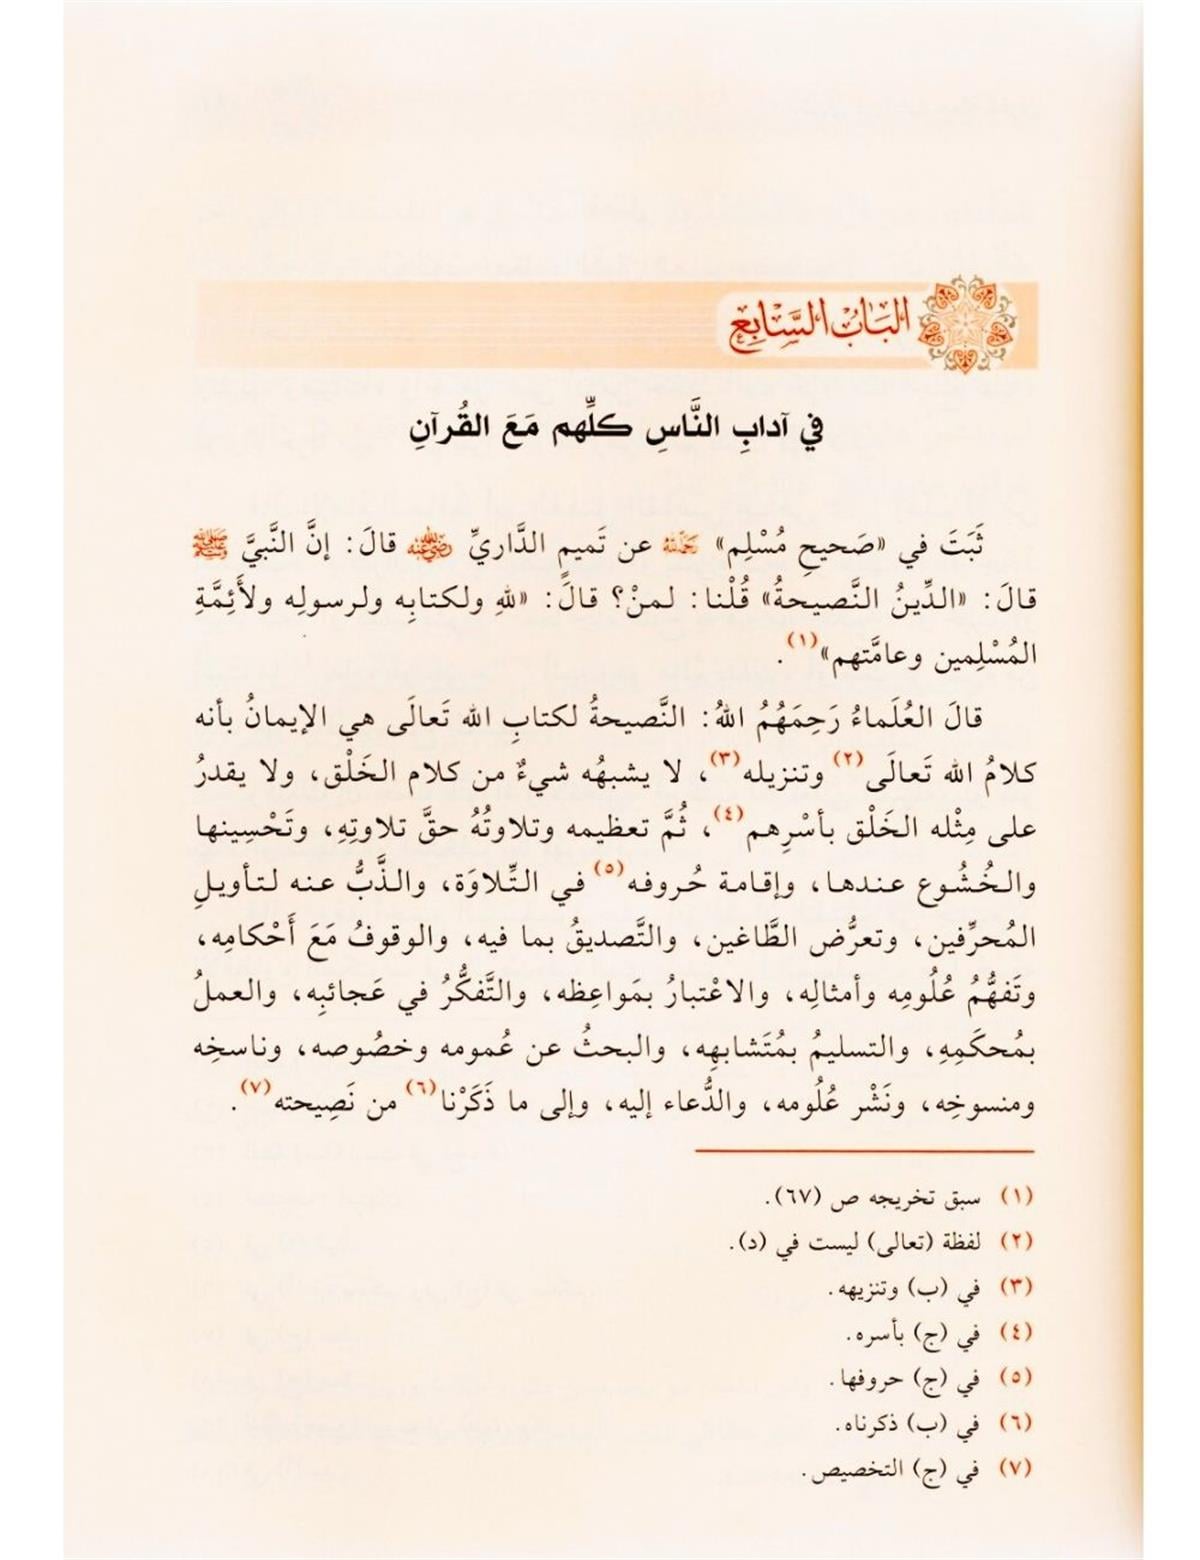 البَابُ السَّابِع
في آدابِ النَّاسِ كلِّهم مَعَ القُرآنِ
ثَبَتَ في «صَحيحِ مُسْلِم» رَحِمَهُ اللهُ عن تَميمٍ الدَّاريِّ رَضِيَ اللهُ عَنْهُ قالَ: إنَّ النَّبيَّ ﷺ
قالَ: «الدِّينُ النَّصيحةُ» قُلْنا: لمنْ؟ قالَ: «للهِ ولكتابِه ولرسولِه ولأَئِمَّةِ
المُسْلِمين وعامَّتهم»(١).
قالَ العُلَماءُ رَحِمَهُمُ اللهُ: النَّصيحةُ لكتابِ الله تَعالَى هي الإيمانُ بأنه
كلامُ الله تَعالَى(٢) وتنزيله(٣)، لا يشبهُه شيءٌ من كلام الخَلْق، ولا يقدرُ
على مِثْله الخَلْق بأسْرِهم(٤)، ثُمَّ تعظيمه وتلاوتُهُ حقَّ تلاوتِهِ، وتَحْسِينها
والخُشُوع عندها، وإقامة حُروفه(٥) في التِّلاوَة، والذَّبُّ عنه لتأويلِ
المُحرِّفين، وتعرُّض الطَّاغين، والتَّصديقُ بما فيه، والوقوفُ مَعَ أَحْكامِه،
وتَفهُّمُ عُلُومِه وأمثالِه، والاعْتبارُ بمَواعِظه، والتَّفكُّرُ في عَجائبِه، والعملُ
بمُحكَمِهِ، والتسليمُ بمُتَشابهِه، والبحثُ عن عُمومه وخصُوصه، وناسخِه
ومنسوخِه، ونَشْر عُلُومه، والدُّعاء إليه، وإلى ما ذَكَرْنا(٦) من نَصِيحته(٧).
(١) سبق تخريجه ص (٦٧).
(٢) لفظة (تعالى) ليست في (د).
(٣) في (ب) وتنزيهه.
(٤) في (ج) بأسره.
(٥) في (ج) حروفها.
(٦) في (ب) ذكرناه.
(٧) في (ج) التخصيص.